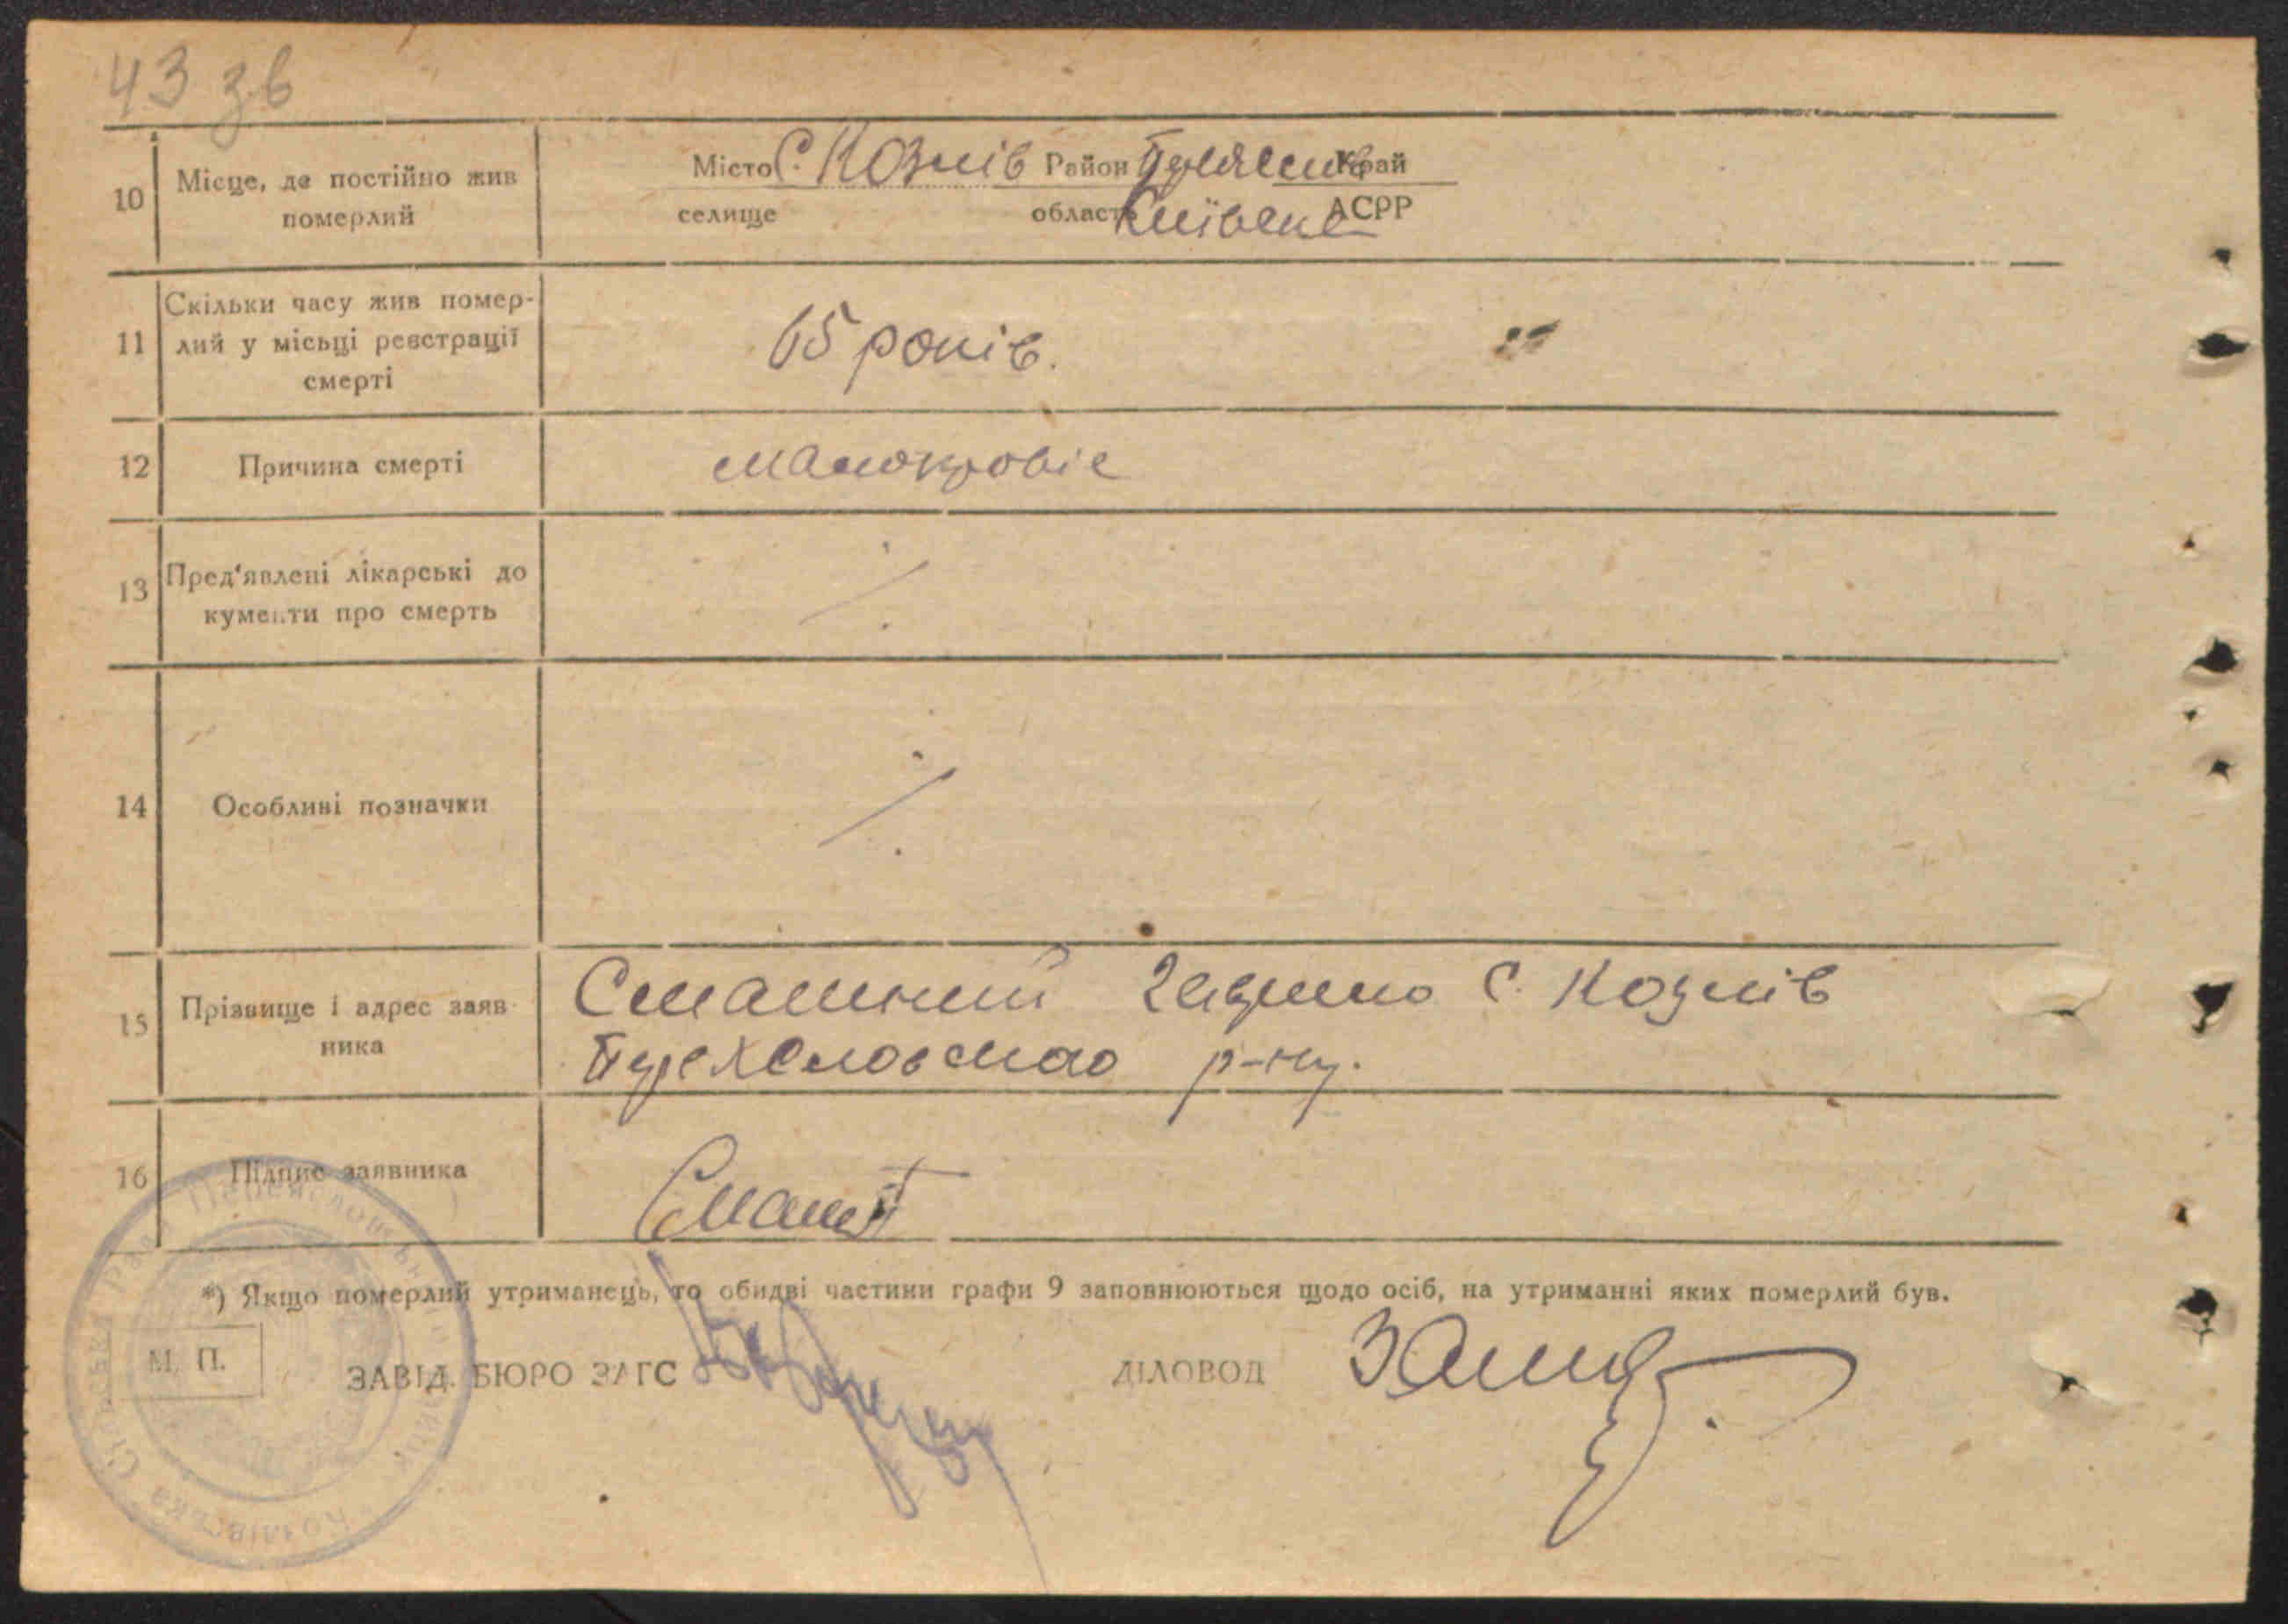 43 зв
10 Місце, де постійно жив померлий
Місто С. Козлів Район Переяслів Край
селище область Київська АСРР
11 Скільки часу жив помер-
лий у місьці реєстрації
смерті
65 років.
12 Причина смерті
малокровіє
13 Пред'явлені лікарські до
кументи про смерть
14 Особливі позначки
15 Прізвище і адрес заяв-
ника
с. Козлів
р-ну.
16 Підпис заявника
*) Якщо померлий утриманець, то обидві частини графи 9 заповнюються щодо осіб, на утриманні яких померлий був.
М. П.
ЗАВІД. БЮРО ЗАГС
ДІЛОВОД
Козлівська Сільська Рада